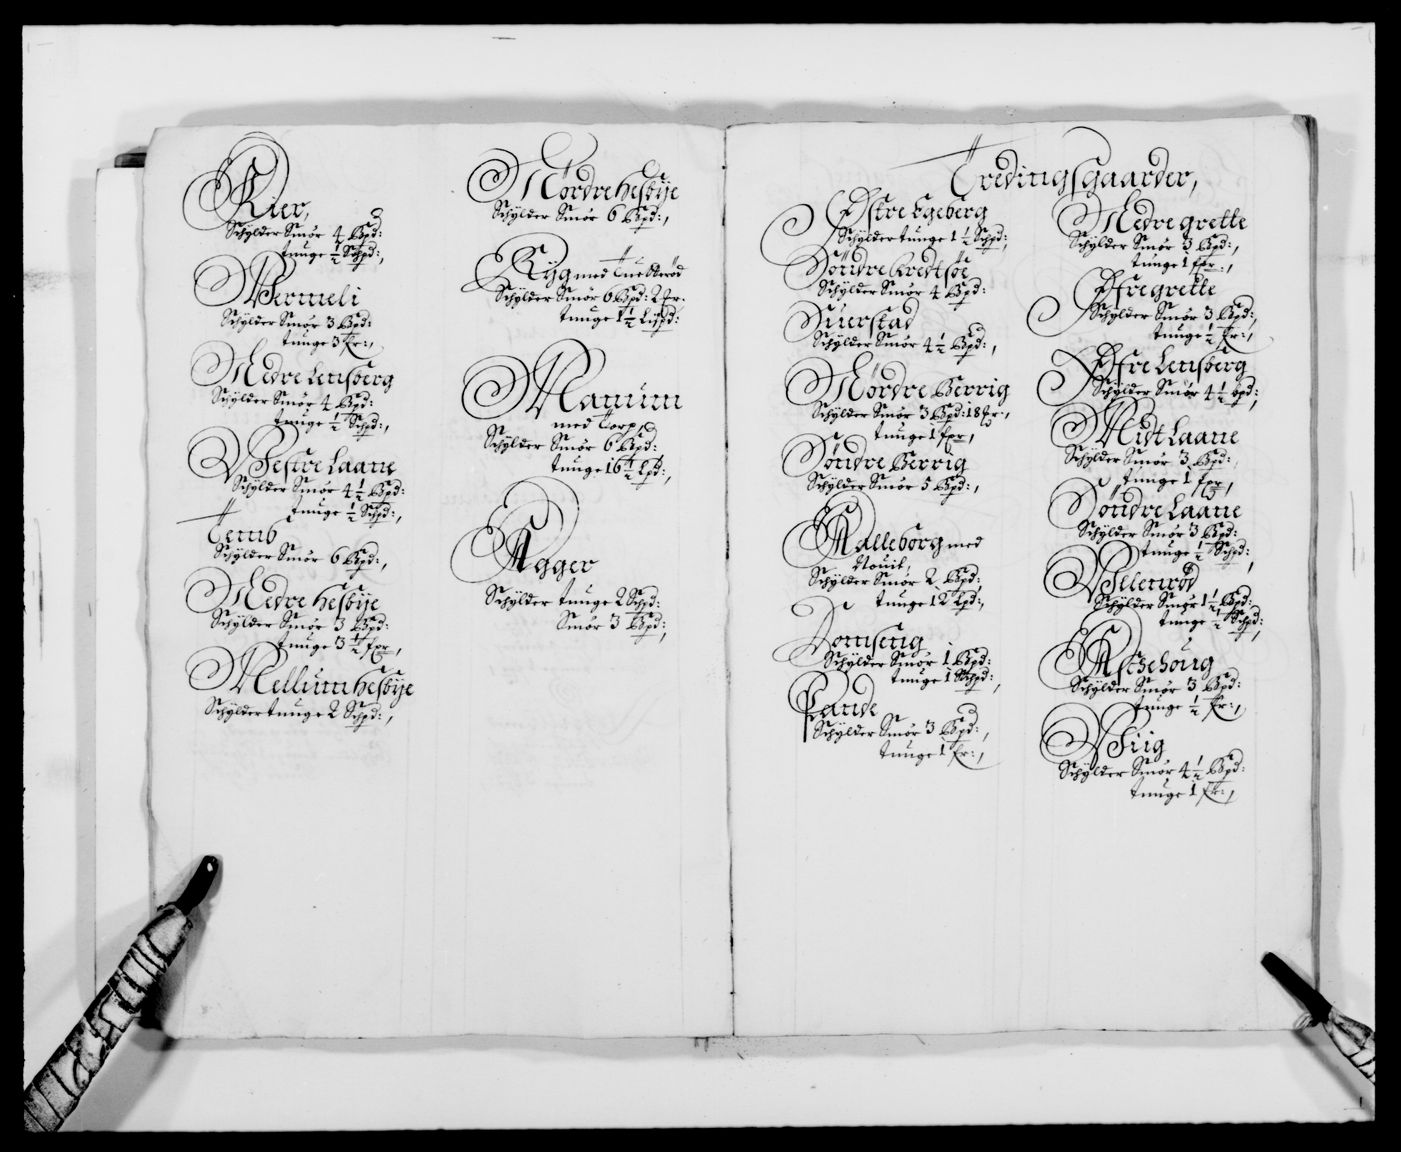 Kier,
Schÿlder Smör 4 Bpd:
tunge ½ Schpd:,
Wermeli
Schÿlder Smör 3 Bpd:
tunge 3 fr:,
Nedre Lensberg
Schÿlder Smör 4 Bpd:
tunge ½ Schpd:,
Westre Laane
Schÿlder Smör 4½ Bpd:
tunge ½ Schpd:,
Temb
Schÿlder Smör 6 Bpd:,
Nedre Hesbÿe
Schÿlder Smör 3 Bpd:
tunge 3½ fpr,
Mellum Hesbÿe
Schÿlder tunge 2 Schpd:,
Nordre Hesbÿe
Schÿlder Smör 6 Bpd:,
Rÿg med
Schÿlder Smör 6 Bpd: 2 fr.
tunge Lispd:
Manum
med Torp,
Schÿlder Smör 6 Bpd:
tunge 16½ Lpd:,
Agger
Schÿlder tunge 2 Schpd:
Smör 3 Bpd:,
Tredingsgaarder,
Østre Egeberg
Schÿlder tunge 1½ Schpd:,
Söndre Kredtsöe
Schÿlder Smör 4 Bpd:
Siuerstad
Schÿlder Smör 4½ Bpd:,
Nordre Berrig
Schÿlder Smör 3 Bpd: 18 fr:,
tunge 1 fpr,
Söndre Berrig
Schÿlder Smör 5 Bpd:,
Kalleborg med
Schÿlder Smör 2 Bpd:
tunge 12 Lpd:,
Domseng
Schÿlder Smör 1 Bpd:
tunge 1 Schpd:,
Pande
Schÿlder Smör 3 Bpd:,
tunge 1 fr:,
Nedre grette
Schÿlder Smör 3 Bpd:,
tunge 1 fpr:,
Øfre grette
Schÿlder Smör 3 Bpd:,
tunge ½ fr:,
Øfre Lensberg
Schÿlder Smör 4½ bpd:,
Midt Laane
Schÿlder Smör 3 Bpd:,
tunge 1 fpr,
Söndre Laane
Schÿlder Smör 3 Bpd:
tunge ½ Schpd:,
Welleröd
Schÿlder Smör 1½ Bpd:,
tunge ½ Schpd:,
Aschehoug
Schÿlder Smör 3 Bpd:
tunge ½ fr:,
Wiig
Schÿlder Smör 4½ Bpd:
tunge 1 fr:,